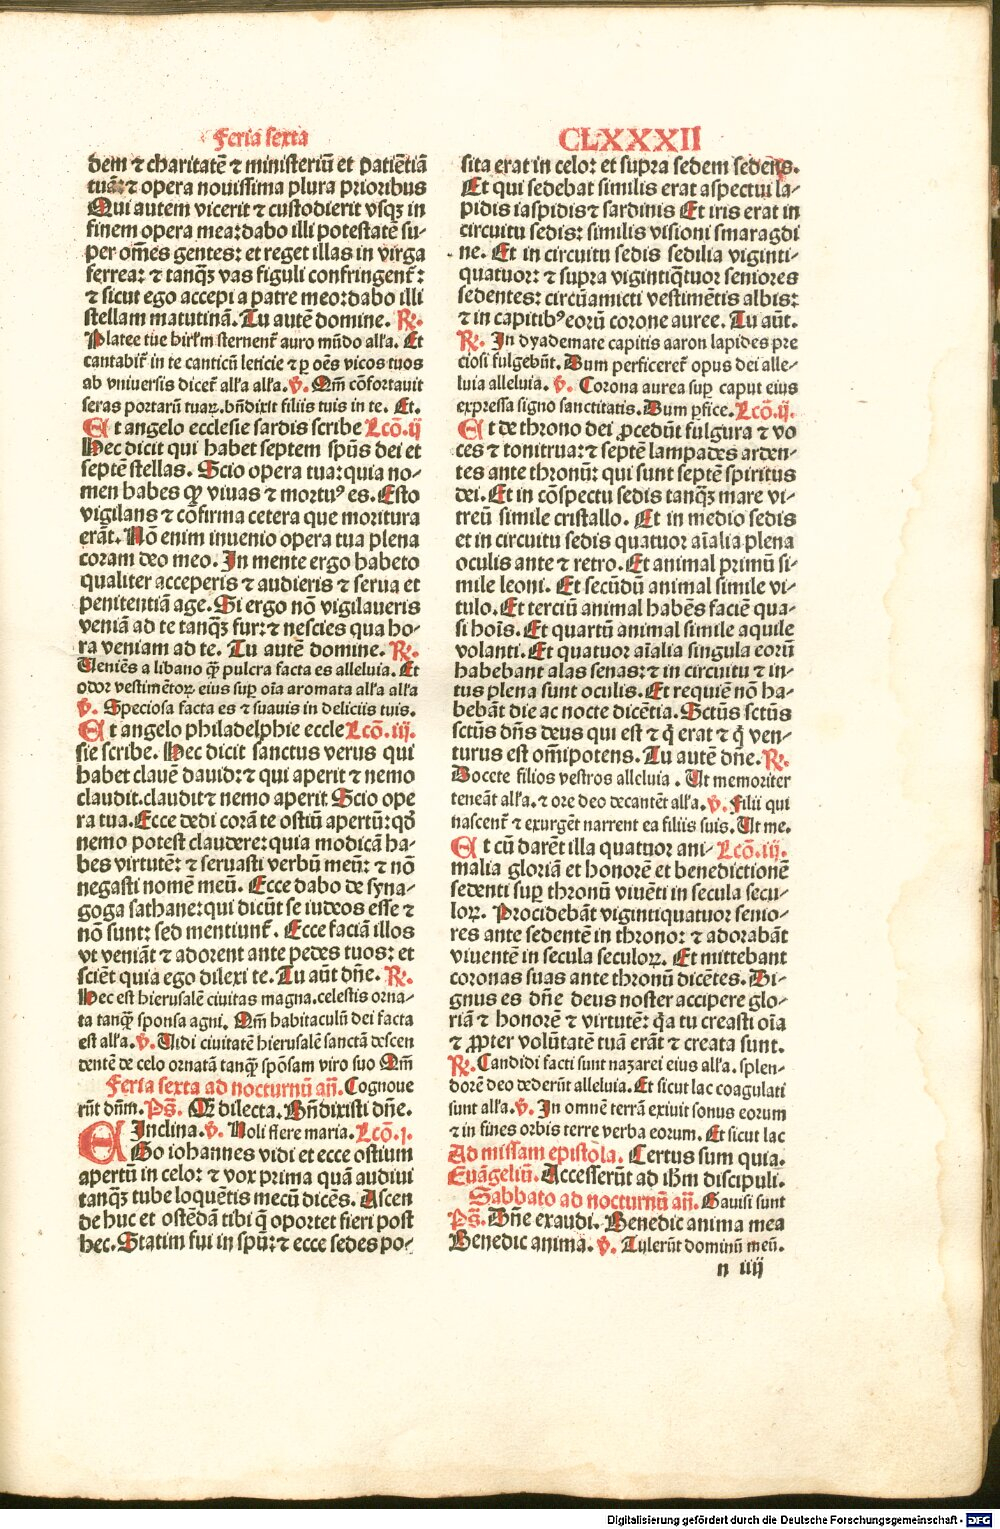 Feria sexta
dem ⁊ charitatē ⁊ ministeriū et patiētiā
tuā: ⁊ opera nouissima plura prioribus
Qui autem vicerit ⁊ custodierit vsqꝫ in
finem opera mea: dabo illi potestatē su-
per om̄es gentes: et reget illas in virga
ferrea: ⁊ tanqꝫ vas figuli confringent᷑:
⁊ sicut ego accepi a patre meo: dabo illi
stellam matutinā. Tu autē domine. ℞.
Platee tue hirl'm sternent᷑ auro mūdo all'a. Et
cantabit᷑ in te canticū leticie ⁊ ꝑ oēs vicos tuos
ab vniuersis dicet᷑ all'a all'a. ℣. Qm̄ cōfortauit
seras portarū tuaꝝ. bn̄dixit filiis tuis in te. Et.
Et angelo ecclesie sardis scribe Lcō. ij
Hec dicit qui habet septem spūs dei et
septē stellas. Scio opera tua: quia no-
men habes ꝙ viuas ⁊ mortuꝰ es. Esto
vigilans ⁊ cōfirma cetera que moritura
erāt. Nō enim inuenio opera tua plena
coram deo meo. In mente ergo habeto
qualiter acceperis ⁊ audieris ⁊ serua et
penitentiā age. Si ergo nō vigilaueris
veniā ad te tanqꝫ fur: ⁊ nescies qua ho-
ra veniam ad te. Tu autē domine. ℞.
Veniēs a libano qꝫ pulcra facta es alleluia. Et
odor vestimētoꝝ eius suꝑ oīa aromata all'a all'a
℣. Speciosa facta es ⁊ suauis in deliciis tuis.
Et angelo philadelphie eccle Lcō. iij.
sie scribe. Hec dicit sanctus verus qui
habet clauē dauid: ⁊ qui aperit ⁊ nemo
claudit. claudit ⁊ nemo aperit Scio ope
ra tua. Ecce dedi corā te ostiū apertū: qd̄
nemo potest claudere: quia modicā ha-
bes virtutē: ⁊ seruasti verbū meū: ⁊ nō
negasti nomē meū. Ecce dabo de syna-
goga sathane: qui dicūt se iudeos esse ⁊
nō sunt: sed mentiunt᷑. Ecce faciā illos
vt veniāt ⁊ adorent ante pedes tuos: et
sciēt quia ego dilexi te. Tu aūt dn̄e. ℞.
Hec est hierusalē ciuitas magna. celestis orna-
ta tanqꝫ sponsa agni. Qm̄ habitaculū dei facta
est all'a. ℣. Vidi ciuitatē hierusalē sanctā descen
dentē de celo ornatā tanqꝫ spōsam viro suo Qm̄
Feria sexta ad nocturnū añ. Cognoue
rūt dn̄m. Pš. Q̄ dilecta. Bn̄dixisti dn̄e.
Inclina. ℣. Noli flere maria. Lcō. j.
EGo iohannes vidi et ecce ostium
apertū in celo: ⁊ vox prima quā audiui
tanqꝫ tube loquētis mecū dicēs. Ascen
de huc et ostēdā tibi q̄ oportet fieri post
hec. Statim fui in spū: ⁊ ecce sedes po-
CLXXXII
sita erat in celo: et supra sedem sedēs.
Et qui sedebat similis erat aspectui la-
pidis iaspidis ⁊ sardinis Et iris erat in
circuitu sedis: similis visioni smaragdi
ne. Et in circuitu sedis sedilia viginti-
quatuor: ⁊ supra vigintiq̄tuor seniores
sedentes: circūamicti vestimētis albis:
⁊ in capitibꝰ eorū corone auree. Tu aūt.
℞. In dyademate capitis aaron lapides pre
ciosi fulgebūt. Dum perficeret᷑ opus dei alle-
luia alleluia. ℣. Corona aurea suꝑ caput eius
expressa signo sanctitatis. Dum ꝑfice. Lcō. ij.
Et de throno dei ꝓcedūt fulgura ⁊ vo
ces ⁊ tonitrua: ⁊ septē lampades arden-
tes ante thronū: qui sunt septē spiritus
dei. Et in cōspectu sedis tanqꝫ mare vi-
treū simile cristallo. Et in medio sedis
et in circuitu sedis quatuor aīalia plena
oculis ante ⁊ retro. Et animal primū si-
mile leoni. Et secūdū animal simile vi-
tulo. Et terciū animal habēs faciē qua-
si hoīs. Et quartū animal simile aquile
volanti. Et quatuor aīalia singula eorū
habebant alas senas: ⁊ in circuitu ⁊ in-
tus plena sunt oculis. Et requiē nō ha-
bebāt die ac nocte dicētia. Sctūs sctūs
sctūs dn̄s deus qui est ⁊ q̇ erat ⁊ q̇ ven-
turus est om̄ipotens. Tu autē dn̄e. ℞.
Docete filios vestros alleluia. Ut memoriter
teneāt all'a. ⁊ ore deo decantēt all'a. ℣. Filii qui
nascent᷑ ⁊ exurgēt narrent ea filiis suis. Ut me.
Et cū darēt illa quatuor ani- Lcō. iij.
malia gloriā et honorē et benedictionē
sedenti suꝑ thronū viuēti in secula secu-
loꝝ. Procidebāt vigintiquatuor senio-
res ante sedentē in throno: ⁊ adorabāt
viuentē in secula seculoꝝ. Et mittebant
coronas suas ante thronū dicētes. Di-
gnus es dn̄e deus noster accipere glo-
riā ⁊ honorē ⁊ virtutē: q̇a tu creasti oīa
⁊ ꝓpter volūtatē tuā erāt ⁊ creata sunt.
℞. Candidi facti sunt nazarei eius all'a. splen-
dorē deo dederūt alleluia. Et sicut lac coagulati
sunt all'a. ℣. In omnē terrā exiuit sonus eorum
⁊ in fines orbis terre verba eorum. Et sicut lac
Ad missam epistola. Certus sum quia.
Euāgeliū. Accesserūt ad ihm̄ discipuli.
Sabbato ad nocturnū añ. Gauisi sunt
Pš. Dn̄e exaudi. Benedic anima mea
Benedic anima. ℣. Tulerūt dominū meū.
n iiij
Digitalisierung gefördert durch die Deutsche Forschungsgemeinschaft - DFG